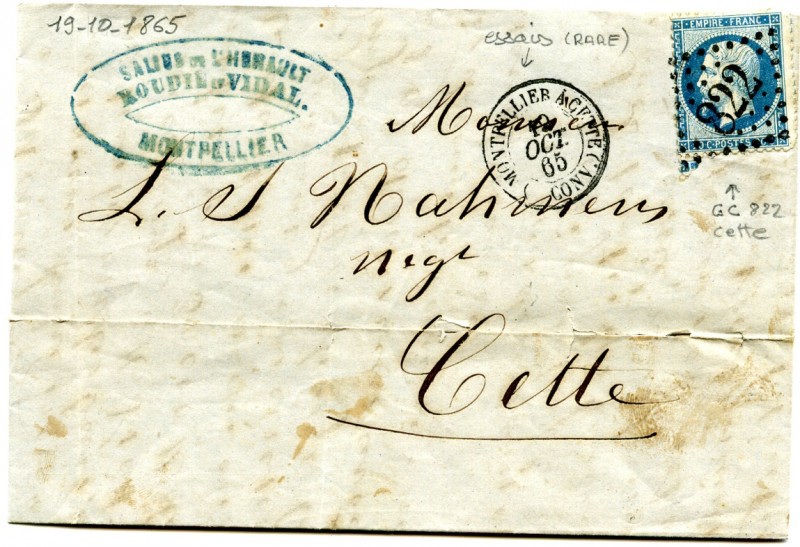 19-10-1865
essais (RARE)
EMPIRE FRANC
822
SALINS DE L'HERAULT
ROUDIL ET VIDAL.
MONTPELLIER
MONTPELLIER A CETTE (ANN
CONV
19
OCT.
65
Monsr
L. S Nahmens
Negt
Cette
GC 822
Cette